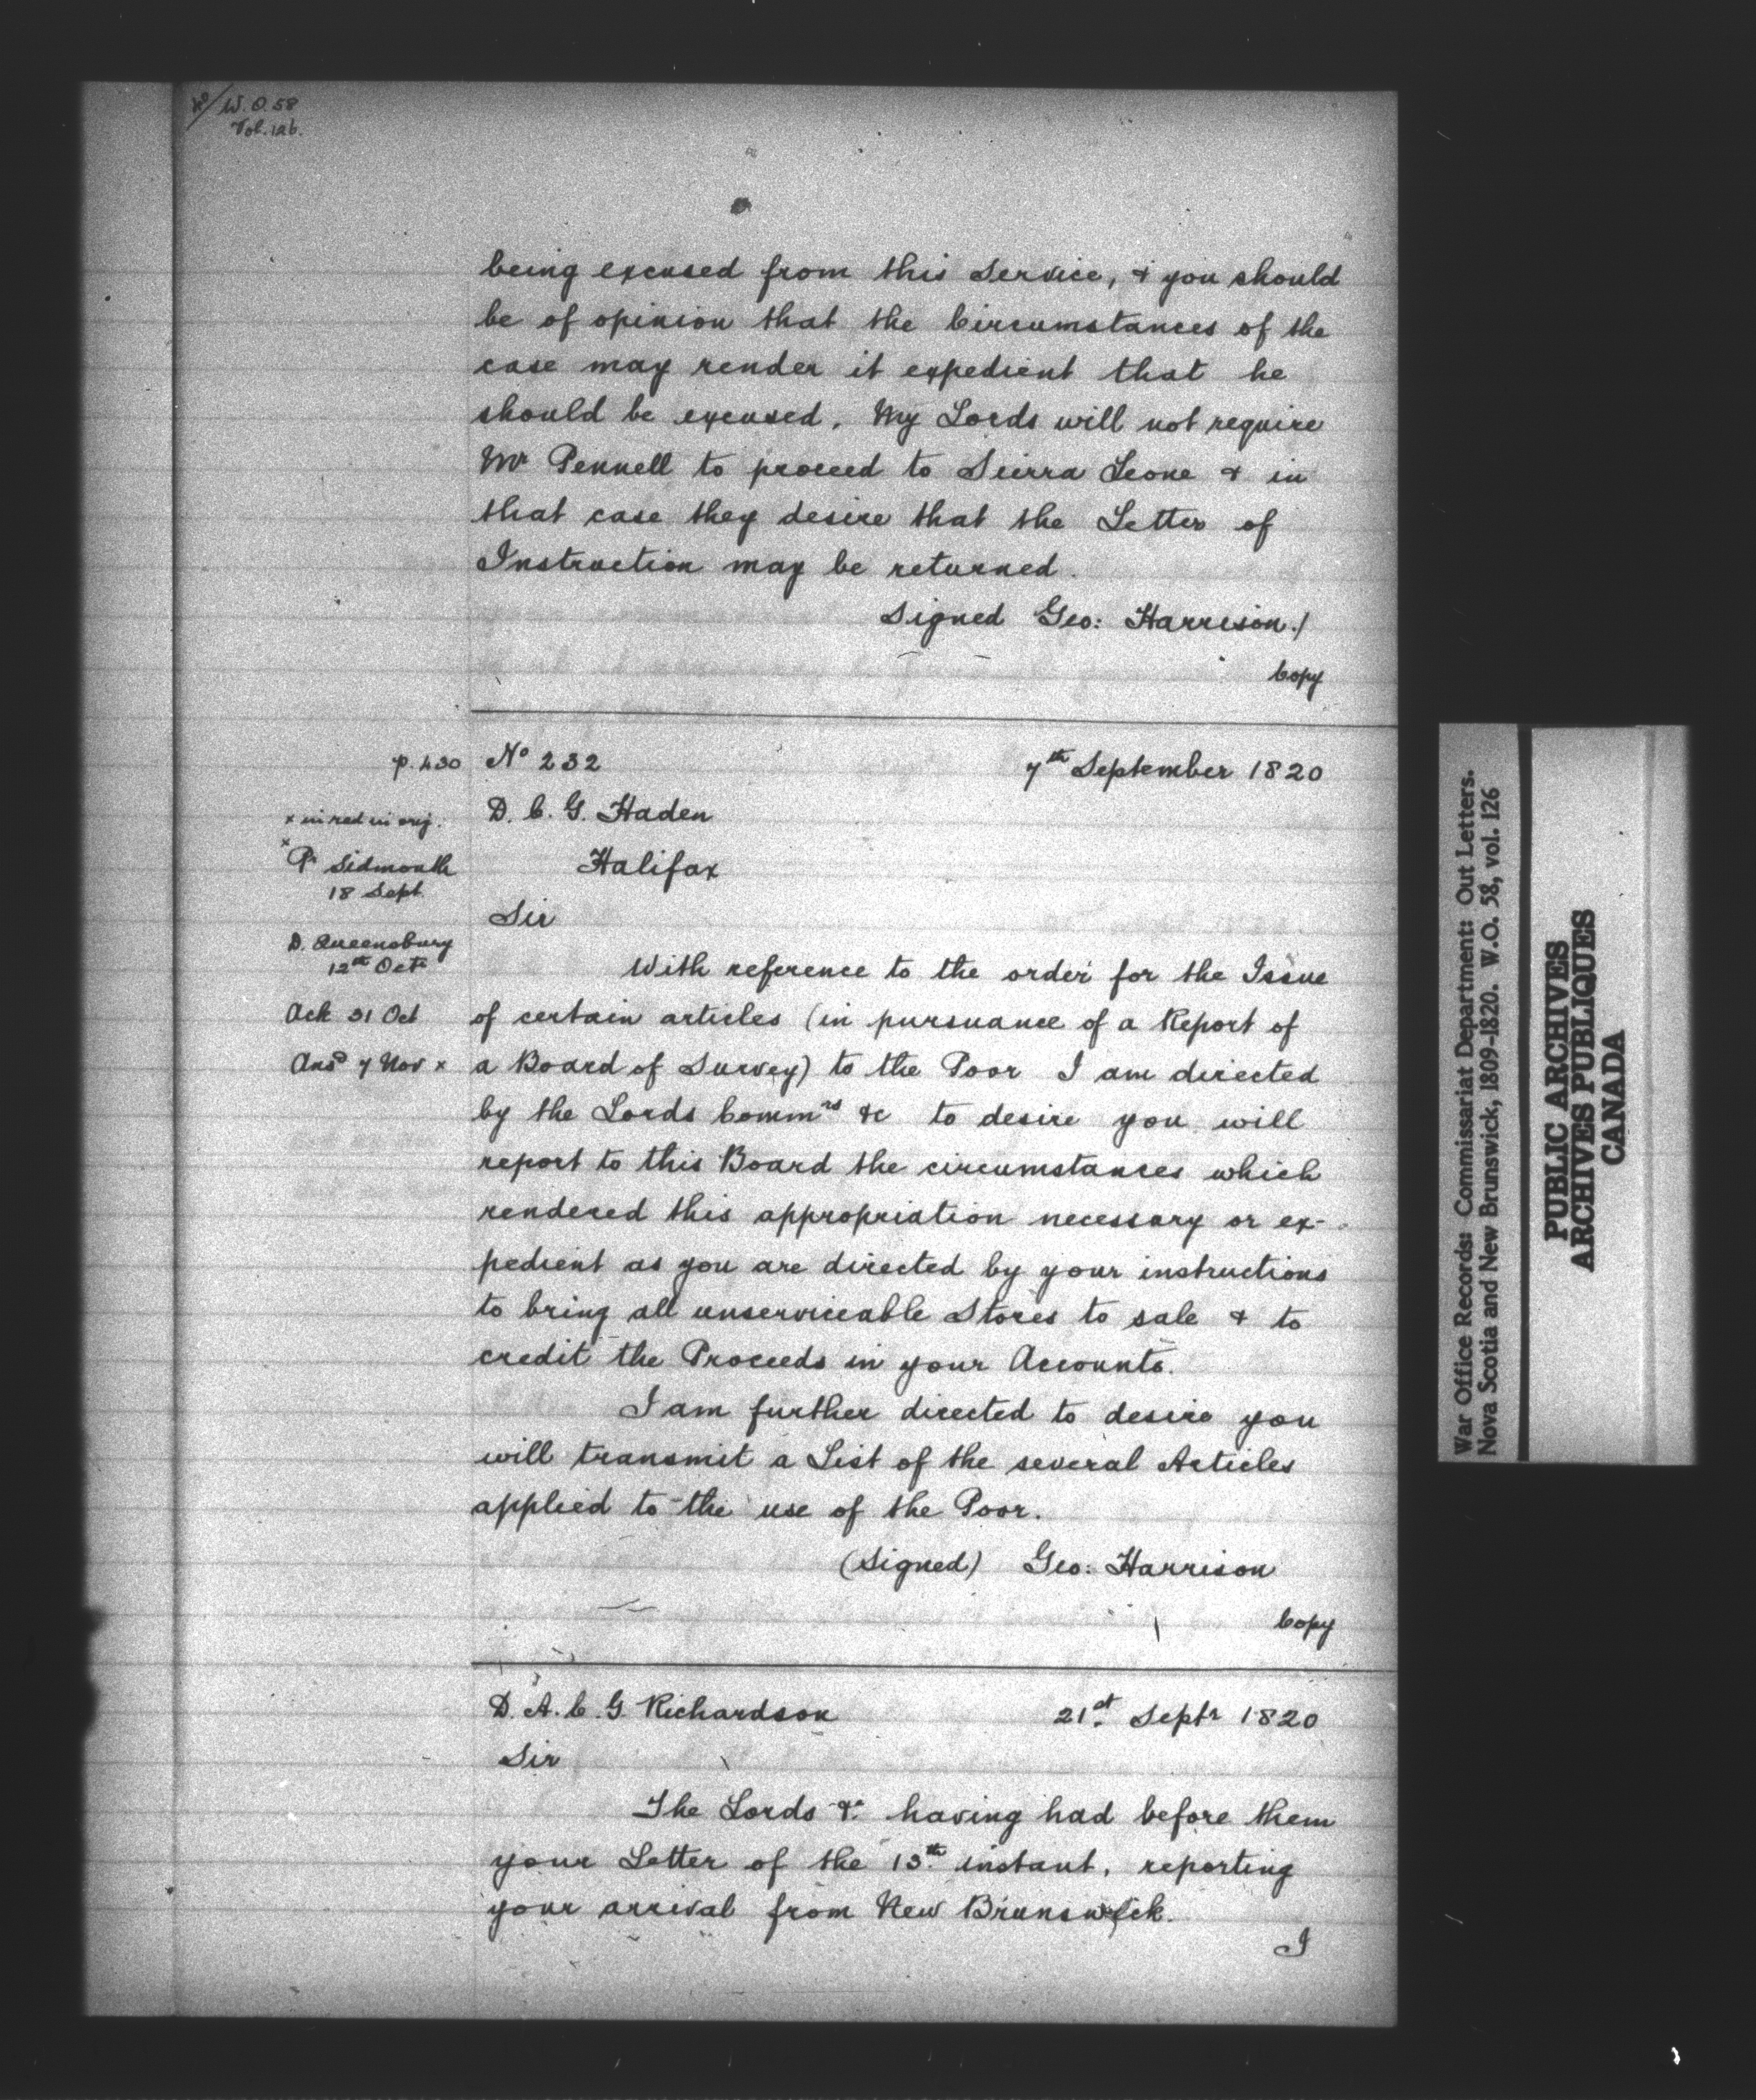 W. O. 58
Vol. 126.
being excused from this Service, & you should
be of opinion that the Circumstances of the
case may render it expedient that he
should be excused, My Lords will not require
Mr Pennell to proceed to Sierra Leone & in
that case they desire that the Letter of
Instruction may be returned.
Signed Geo: Harrison./
Copy
p. 430
No 232
7th September 1820
x in red in orig.
D. C. G. Haden
x Pr Sidmouth
18 Sept.
Halifax
Sir
D. Queensbury
12th Oct
With reference to the order for the Issue
Ack 31 Oct
of certain articles (in pursuance of a Report of
Ansd 7 Nov x
a Board of Survey) to the Poor I am directed
by the Lords Commrs &c to desire you will
report to this Board the circumstances which
rendered this appropriation necessary or ex-
pedient as you are directed by your instructions
to bring all unserviceable Stores to sale & to
credit the Proceeds in your Accounts.
I am further directed to desire you
will transmit a List of the several Articles
applied to the use of the Poor.
(Signed) Geo: Harrison
Copy
D. A. C. G. Richardson
21st Septr 1820
Sir
The Lords &c having had before them
your Letter of the 13th instant, reporting
your arrival from New Brunswick.
I
War Office Records: Commissariat Department: Out Letters.
Nova Scotia and New Brunswick, 1809-1820. W.O. 58, vol. 126
PUBLIC ARCHIVES
ARCHIVES PUBLIQUES
CANADA